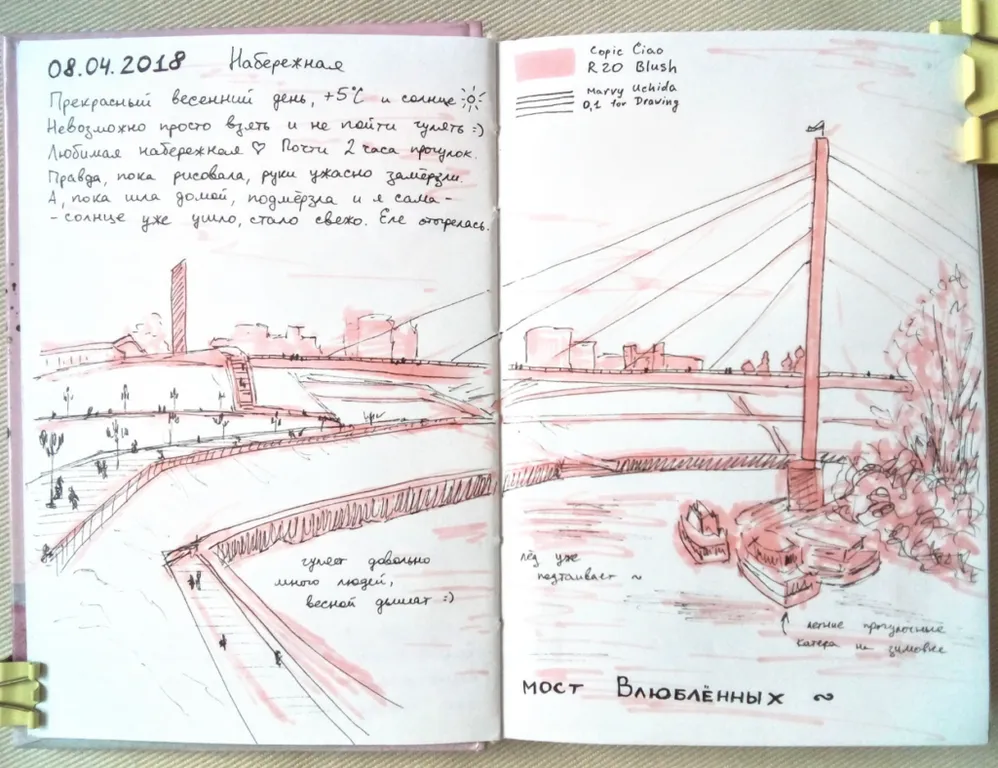 08.04.2018 Набережная
Прекрасный весенний день, +5°C и солнце
Невозможно просто взять и не пойти гулять :)
Любимая набережная ♡ Почти 2 часа прогулок.
Правда, пока рисовала, руки ужасно замёрзли.
А, пока шла домой, подмёрзла и я сама -
- солнце уже ушло, стало свежо. Еле отогрелась.
гуляет довольно
много людей,
весной дышат :)
Copic Ciao
R20 Blush
Marvy Uchida
0,1 for Drawing
лёд уже
подтаивает ~
летние прогулочные
катера на зимовке
мост Влюблённых ~